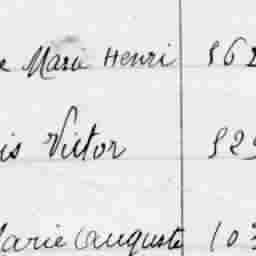 e Marie Henri 562
is Victor 529
Marie Auguste 103